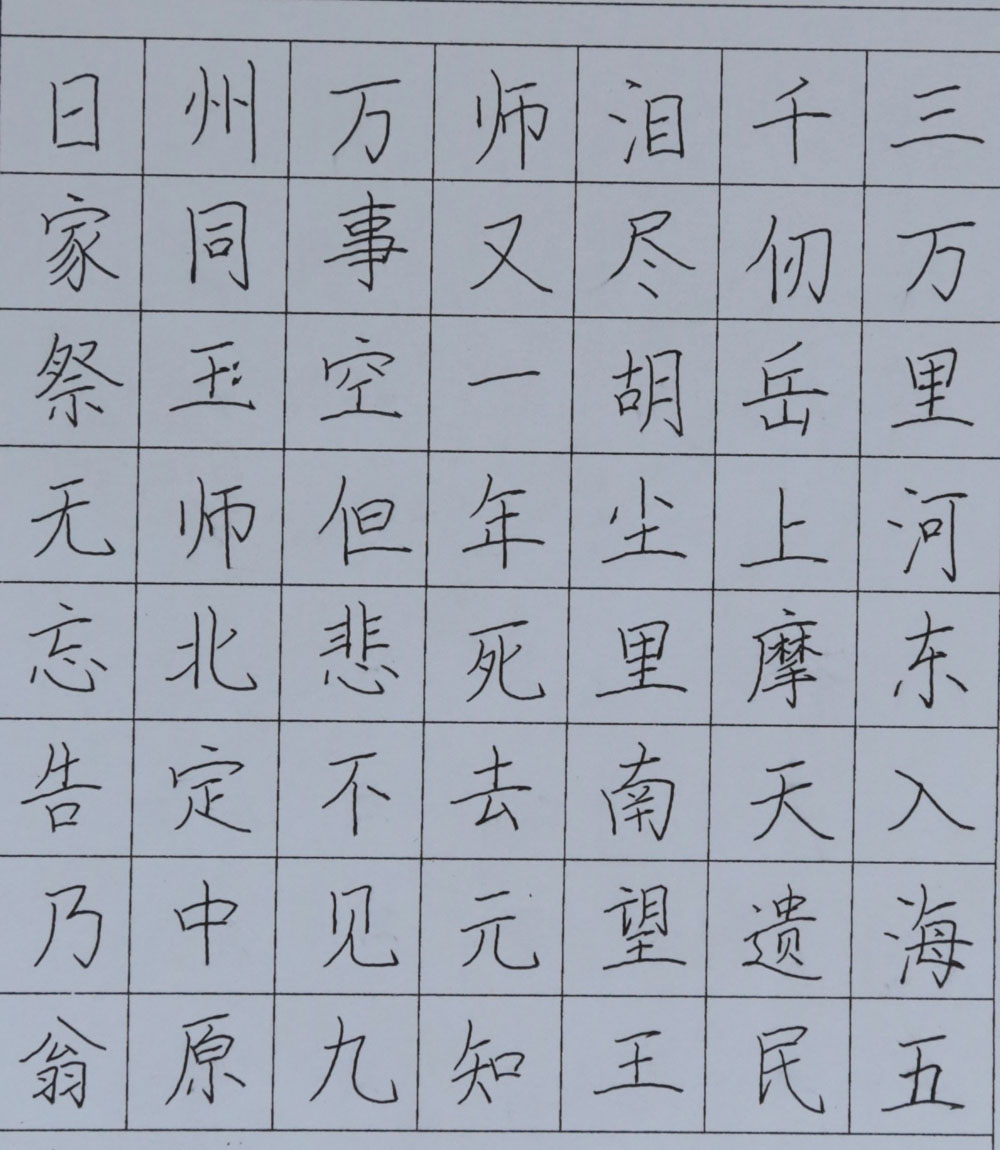 三万里河东入海五
千仞岳上摩天遗民
泪尽胡尘里南望王
师又一年死去元知
万事空但悲不见九
州同王师北定中原
日家祭无忘告乃翁